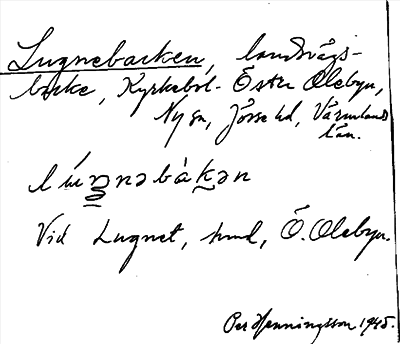 Lugnebacken, landsvägs-
backe, Kyrkebol - Öster Olebyn,
Ny sn, Jösse hd, Värmlands
län.
lúŋnəbàkən
Vid Lugnet, hmd, Ö. Olebyn.
Per Henningsson 1945.